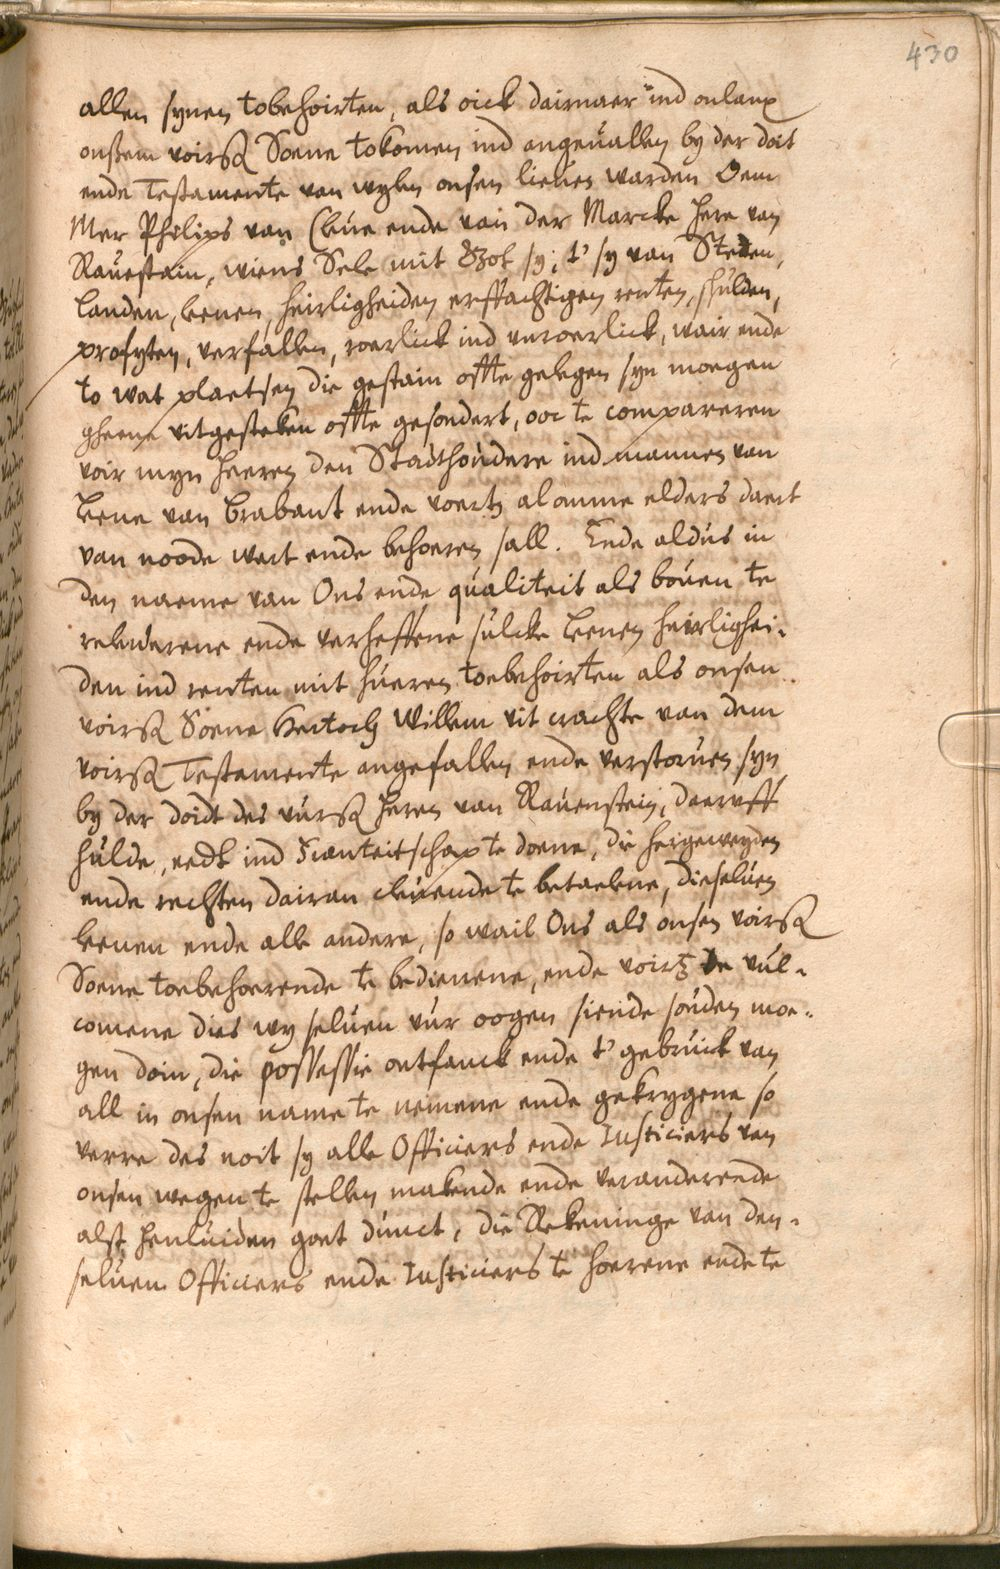 430
allen synen tobehoirten, als oick dairnaer ind onlanx
onßem voirß Soene tokomen ind angeuallen by der doit
ende Testamente van wylen onsen lieuen warden Oem
Mer Philips van Cleue ende van der Marcke Here van
Rauestain, wiens Sele mit Got sy, t' sy van Steden,
Landen, Leenen, heirligheiden erffachtigen renten, schulden,
profyten, verfallen, roerlick ind vnroerlick, wair ende
to wat plaetsen die gestain offte gelegen syn moegen
gheene vitgesteken offte gesondert, ooc te compareren
voir myn Heeren den Stadthoudere ind mannen van
Leene van Brabant ende voertz alomme elders daert
van noode wert ende behoeren sall. Ende aldus in
den naeme van Ons ende qualiteit als bouen te
releuerene ende verheffene sulcke Leenen heirlighei-
den ind renten mit hueren toebehoirten als onsen
voirß Soene Hertoch Willem vit crachte van dem
voirß Testamente angefallen ende verstoruen syn
by der doidt des vurß Heren van Rauenstein, daervff
hulde, eedt ind Fianteitschap te doene, die hergeweyden
ende rechten dairan cleuende te betaelene, dieseluen
Leenen ende alle andere, so wail Ons als onsen voirß
Soene toebehoerende te bedienene, ende voirtz te vul-
comene dies wy seluen vur oogen siende souden moe-
gen doin, die possessie ontfanck ende t' gebruick van
all in onsen name te nemene ende gekrygene so
verre des noit sy alle Officiers ende Justiciers van
onsen wegen te stellen makende ende veranderende
alst henluiden goet dunct, die Rekeninge van den-
seluen Officiers ende Justiciers te hoerene ende te